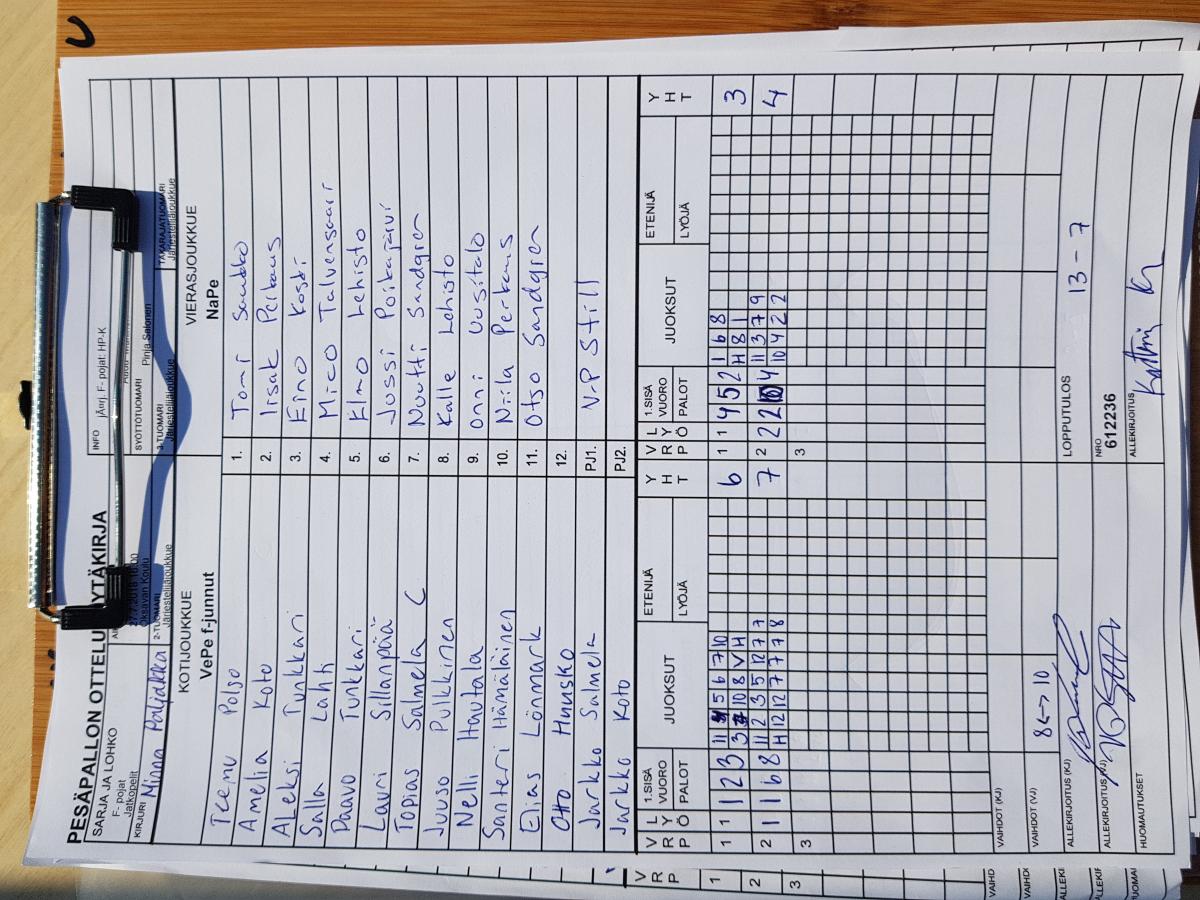 PESÄPALLON OTTELUPÖYTÄKIRJA
SARJA JA LOHKO
F- pojat
Jatkopelit
INFO jÄnrj. F- pojat: HP-K
Oksavan Koulu
SYÖTTÖTUOMARI
Pinja Salonen
KIRJURI Minna Paljakka
2-TUOMARI
Järjestelijäjoukkue
3-TUOMARI
Järjestelijäjoukkue
TAKARAJATUOMARI
Järjestelijäjoukkue
KOTIJOUKKUE
VePe f-junnut
VIERASJOUKKUE
NaPe
Teemu Polso 1. Tomi
Amelia Koto 2. Iisak
Aleksi Tunkkari 3. Eino Koski
Salla Lahti 4. Mico Talvensaari
Paavo Tunkkari 5. Elmo Lehisto
Lauri Sillanpää 6. Jussi Poikajärvi
Topias Salmela C 7. Nuutti Sandgren
Juuso Pulkkinen 8. Kalle Lehisto
Nelli Hautala 9. Onni Uusitalo
Santeri Hämäläinen 10. Niila Perkaus
Elias Lönmark 11. Otso Sandgren
Otto Huusko 12.
Jarkko Salmela PJ1. V-P Still
Jarkko Koto PJ2.
V R P L Y Ö 1.SISÄ VUORO PALOT JUOKSUT ETENIJÄ LYÖJÄ Y H T V R P L Y Ö 1.SISÄ VUORO PALOT JUOKSUT ETENIJÄ LYÖJÄ Y H T
1 1 1 2 3 11 5 6 7 10 6 1 1 4 5 2 1 6 8 3
3 10 8 V H H 8 1
2 1 1 6 8 11 2 3 5 12 7 7 7 2 2 2 4 11 3 7 9 4
H 12 12 7 7 7 8 10 4 2 2
3 3
VAIHDOT (KJ)
VAIHDOT (VJ) 8<->10
ALLEKIRJOITUS (KJ) LOPPUTULOS 13 - 7
ALLEKIRJOITUS (VJ) NRO
612236
HUOMAUTUKSET ALLEKIRJOITUS
V R P
1
2
3